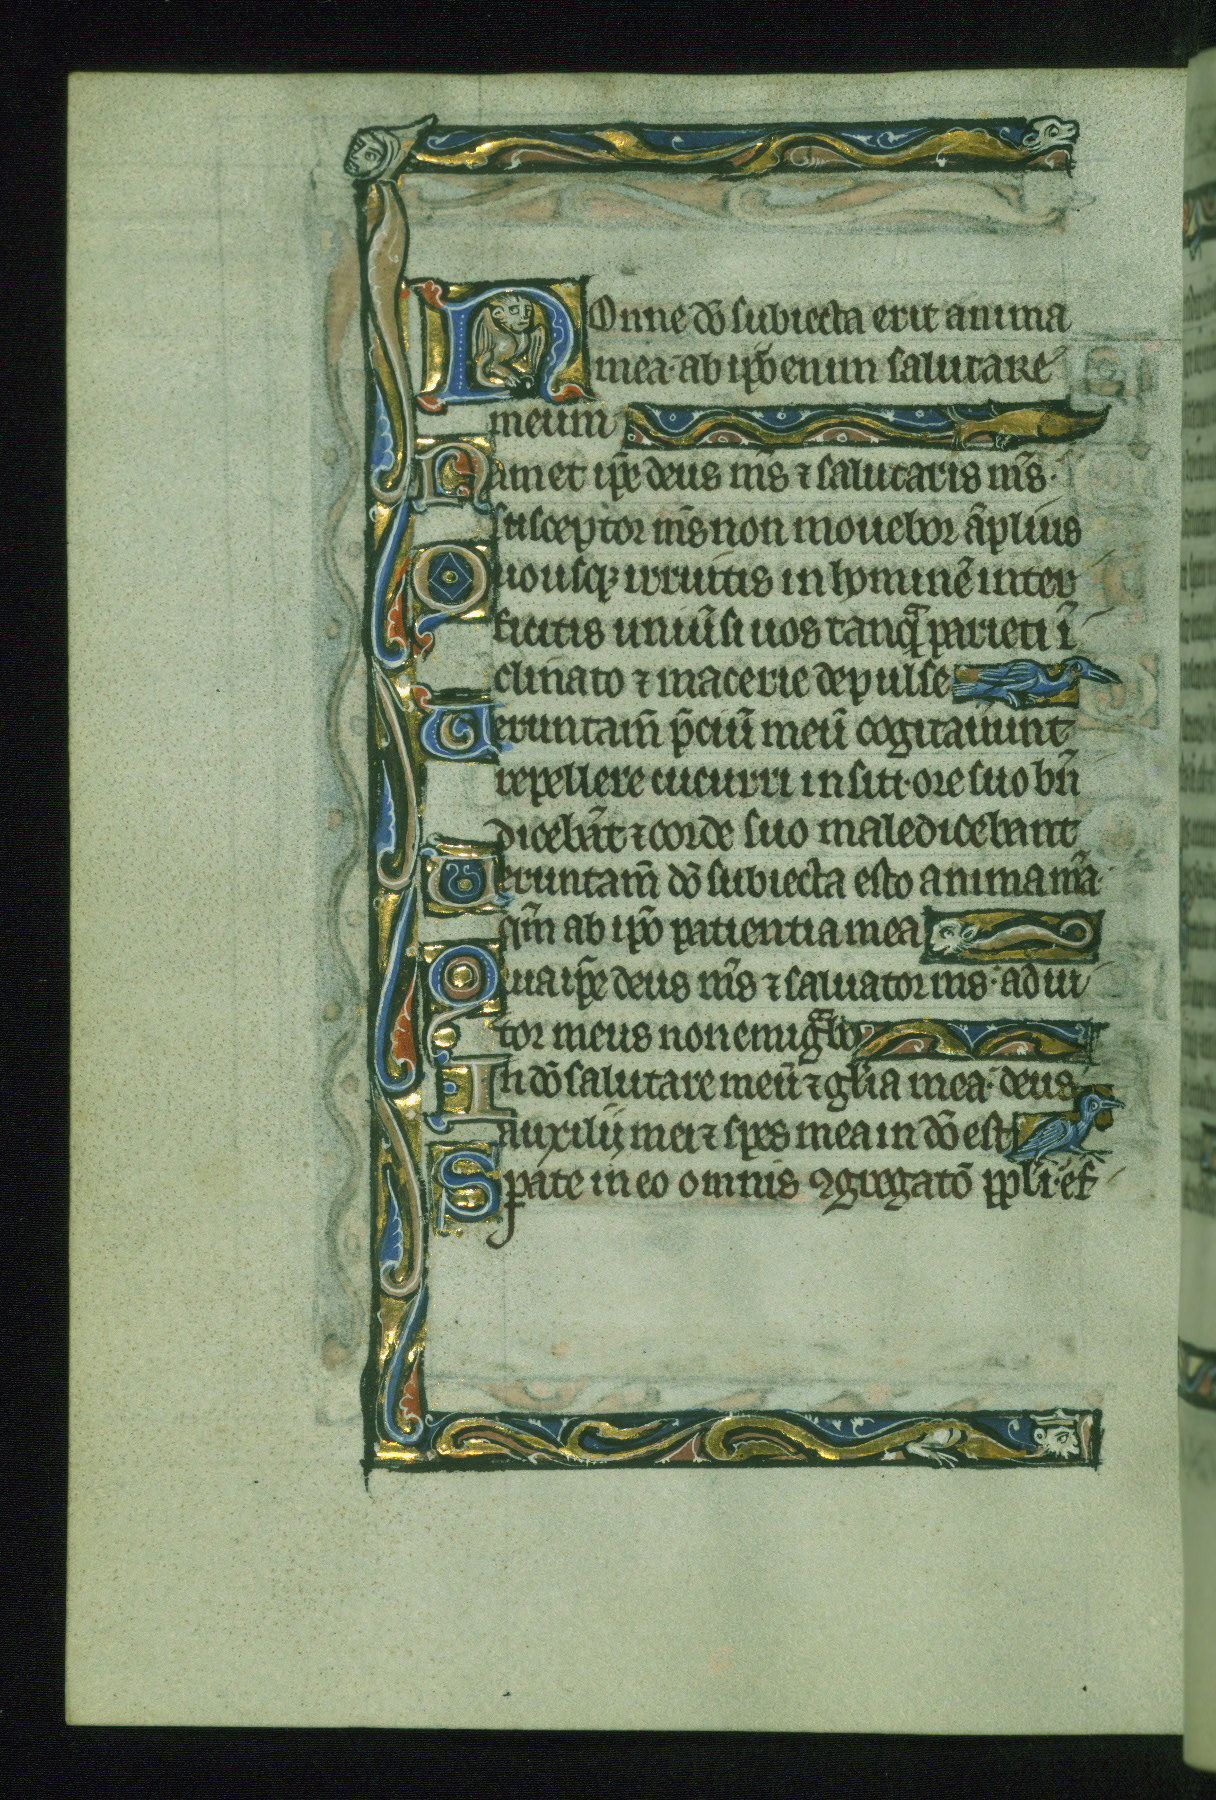 Nonne dō subiecta erit anima
mea· ab ip̄o enim salutare
meum
Nam et ip̄e deus m̄s ⁊ salutaris m̄s·
susceptor m̄s non mouebor āplius
Quousqꝫ irruitis in hominē inter
ficitis uniūsi uos tanqᷓ parieti ī
clinato ⁊ macerie depulse
Ueruntam̄ p̄ciū meū cogitauiunt
repellere cucurri in siti· ore suo bn̄
dicebāt ⁊ corde suo maledicebant
Ueruntam̄ dō subiecta esto anima m̄a·
qm̄ ab ip̄o patientia mea
Quia ip̄e deus m̄s ⁊ saluator ms· adiu
tor meus non emigᷓbo
In dō salutare meū ⁊ gl̄ia mea· deus
auxilii mei ⁊ spes mea in dō est
Spate in eo omnis ꝯgregatō ppli· ef